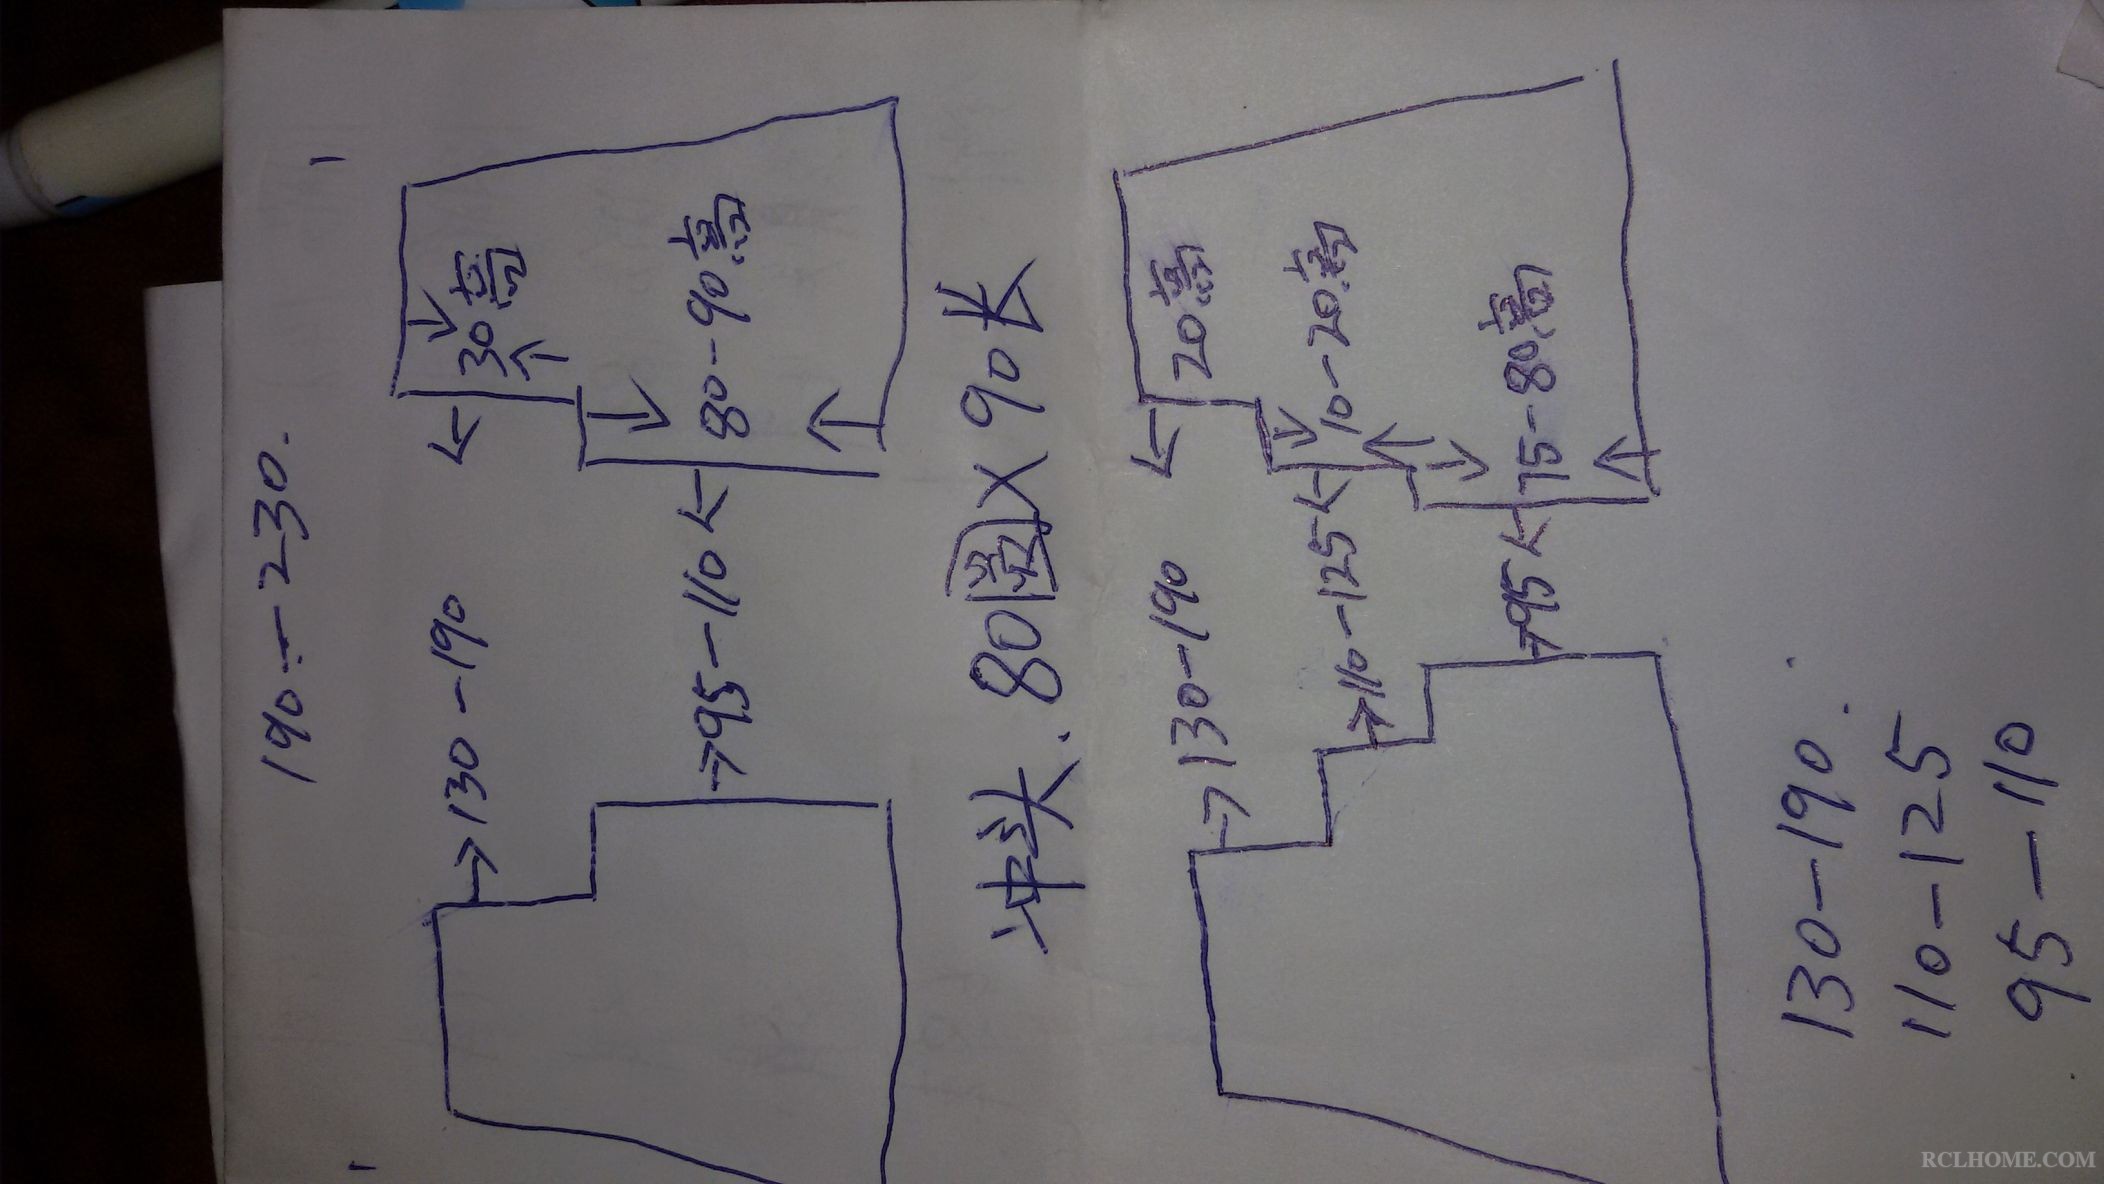 190-230.
130-190 30高
95-110 80-90高
冲头.80圆X90长
130-190 20高
110-125 10-20高
95 75-80高
130-190.
110-125
95-110
RCLHOME.COM